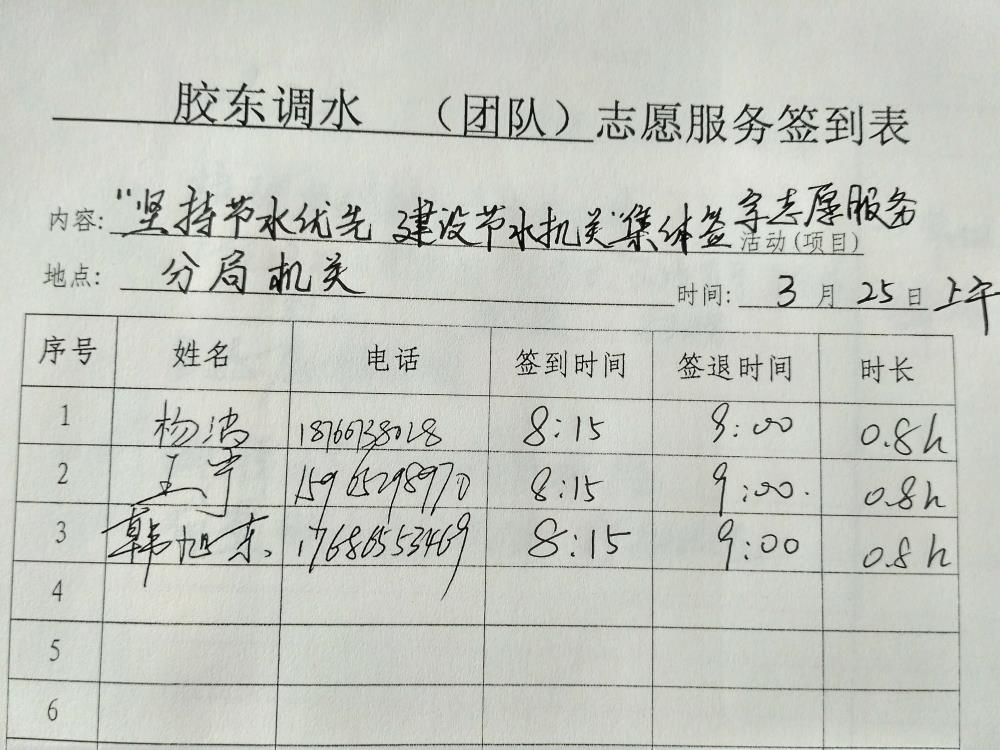 胶东调水 （团队）志愿服务签到表
内容: "坚持节水优先 建设节水机关"集体签字志愿服务 活动(项目)
地点: 分局机关 时间: 3 月 25 日 上午
序号 姓名 电话 签到时间 签退时间 时长
1 杨浩 18766738028 8:15 9:00 0.8h
2 王宁 15965298970 8:15 9:00. 0.8h
3 韩旭东 17686553469 8:15 9:00 0.8h
4
5
6